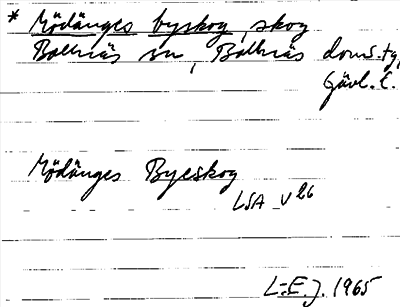 * Mödänges byskog, skog
Bollnäs sn, Bollnäs doms.tg,
Gävl. l.
Mödänges Byeskog
LSA V 26
L-E.J. 1965